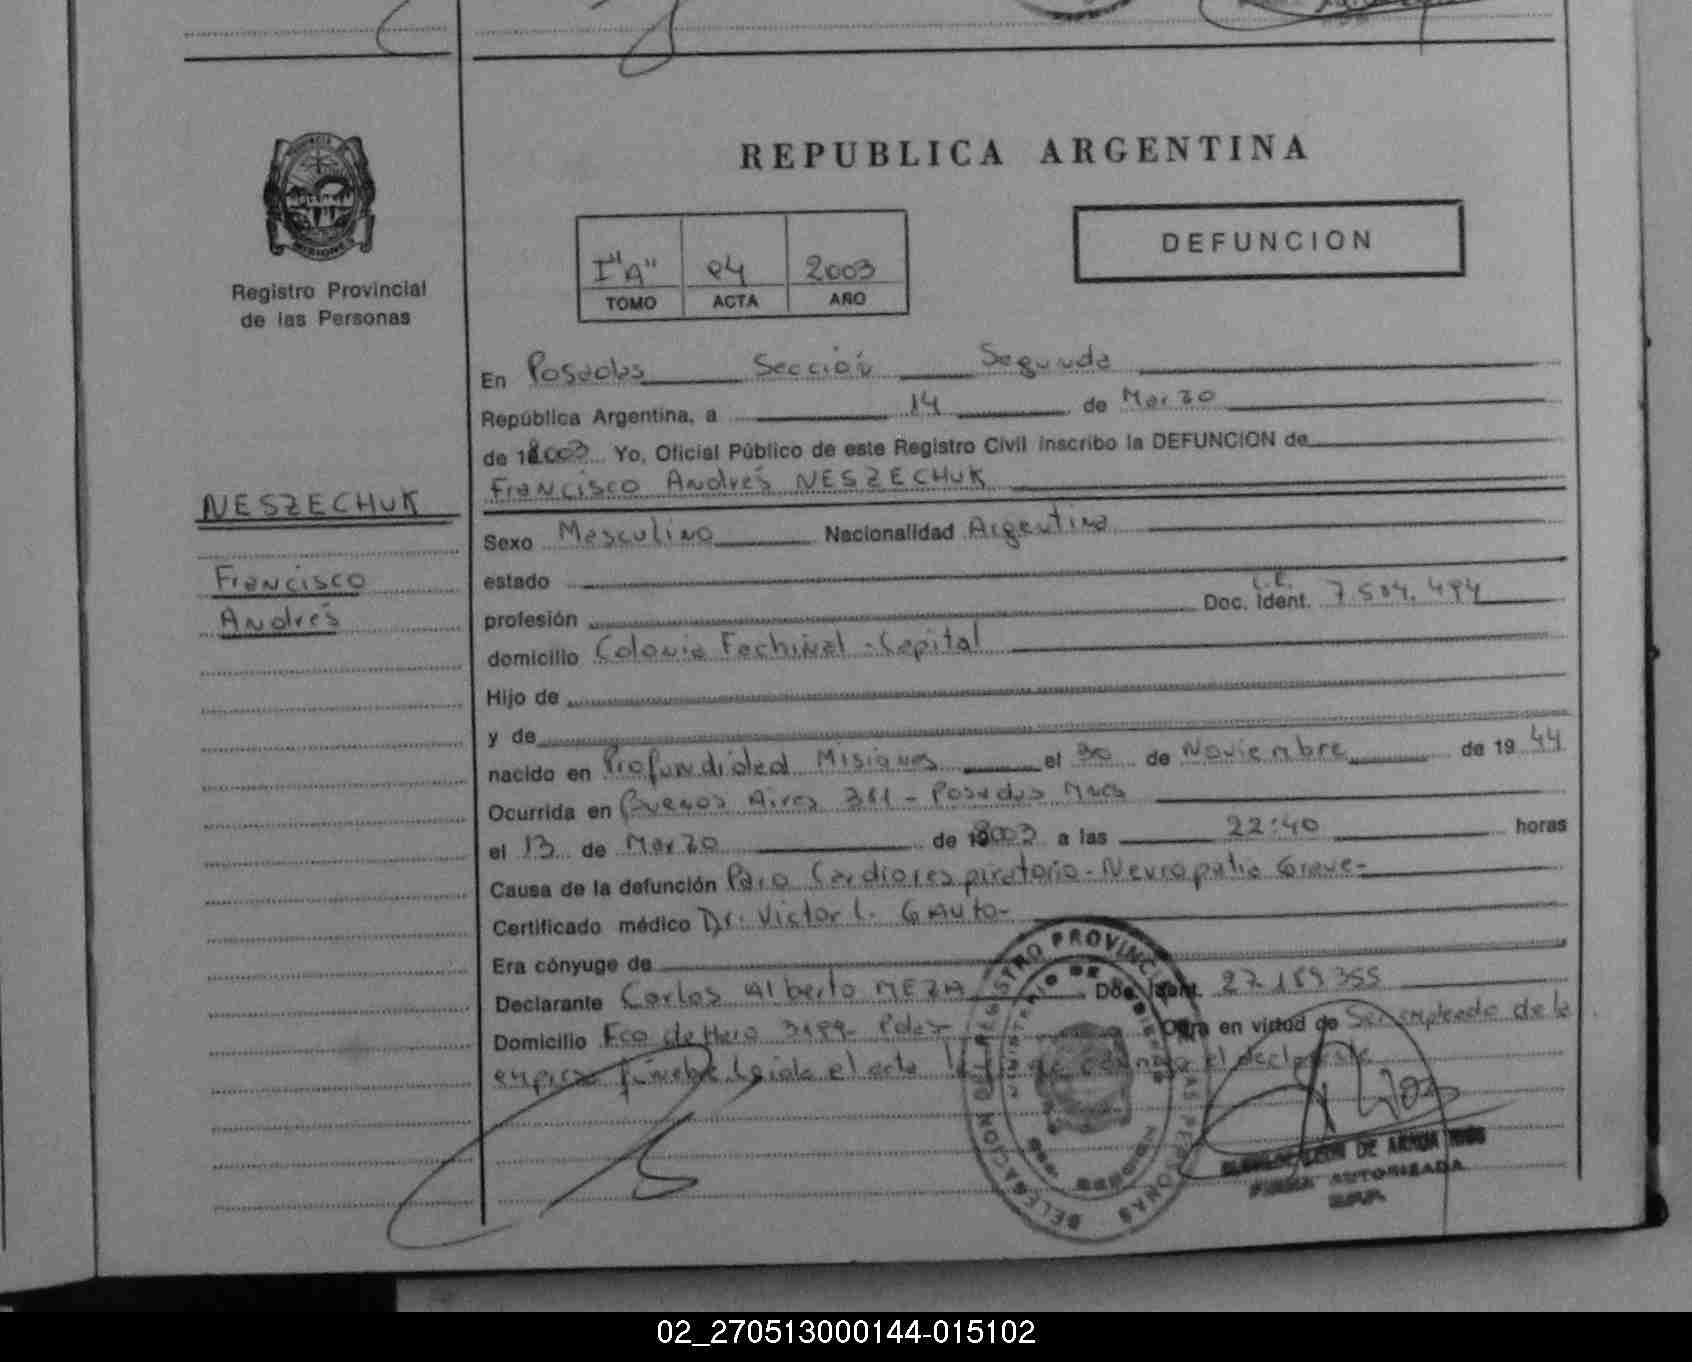 REPUBLICA ARGENTINA
DEFUNCION
I "A" 84 2003
TOMO ACTA AÑO
MISIONES
Registro Provincial
de las Personas
En Posadas Sección Segunda
República Argentina, a 14 de Marzo
de 2003 Yo, Oficial Público de este Registro Civil inscribo la DEFUNCION de
Francisco Andrés NESZECHUK
NESZECHUK
Francisco
Andrés
Sexo Masculino Nacionalidad Argentina
estado
profesión Doc. Ident. L.E. 7.504.494
domicilio Colonia Fachinal - Capital
Hijo de
y de
nacido en Profundidad Misiones el 30 de Noviembre de 1944
Ocurrida en Buenos Aires 311 - Posadas Mnes
el 13 de Marzo de 2003 a las 22:40 horas
Causa de la defunción Paro Cardiorespiratorio - Neuropatia Grave -
Certificado médico Dr. Victor L. GAUTO -
Era cónyuge de
Declarante Carlos Alberto MEZA Doc. Ident. 27.189.355
Domicilio Fco de Haro 3199 - Pdas - Obra en virtud de Ser empleado de la
empresa fúnebre Leída el acta la firma conmigo el declarante
DELEGACION DEL REGISTRO PROVINCIAL DE LAS PERSONAS
MINISTERIO DE GOBIERNO
FIRMA AUTORIZADA
02_270513000144-015102